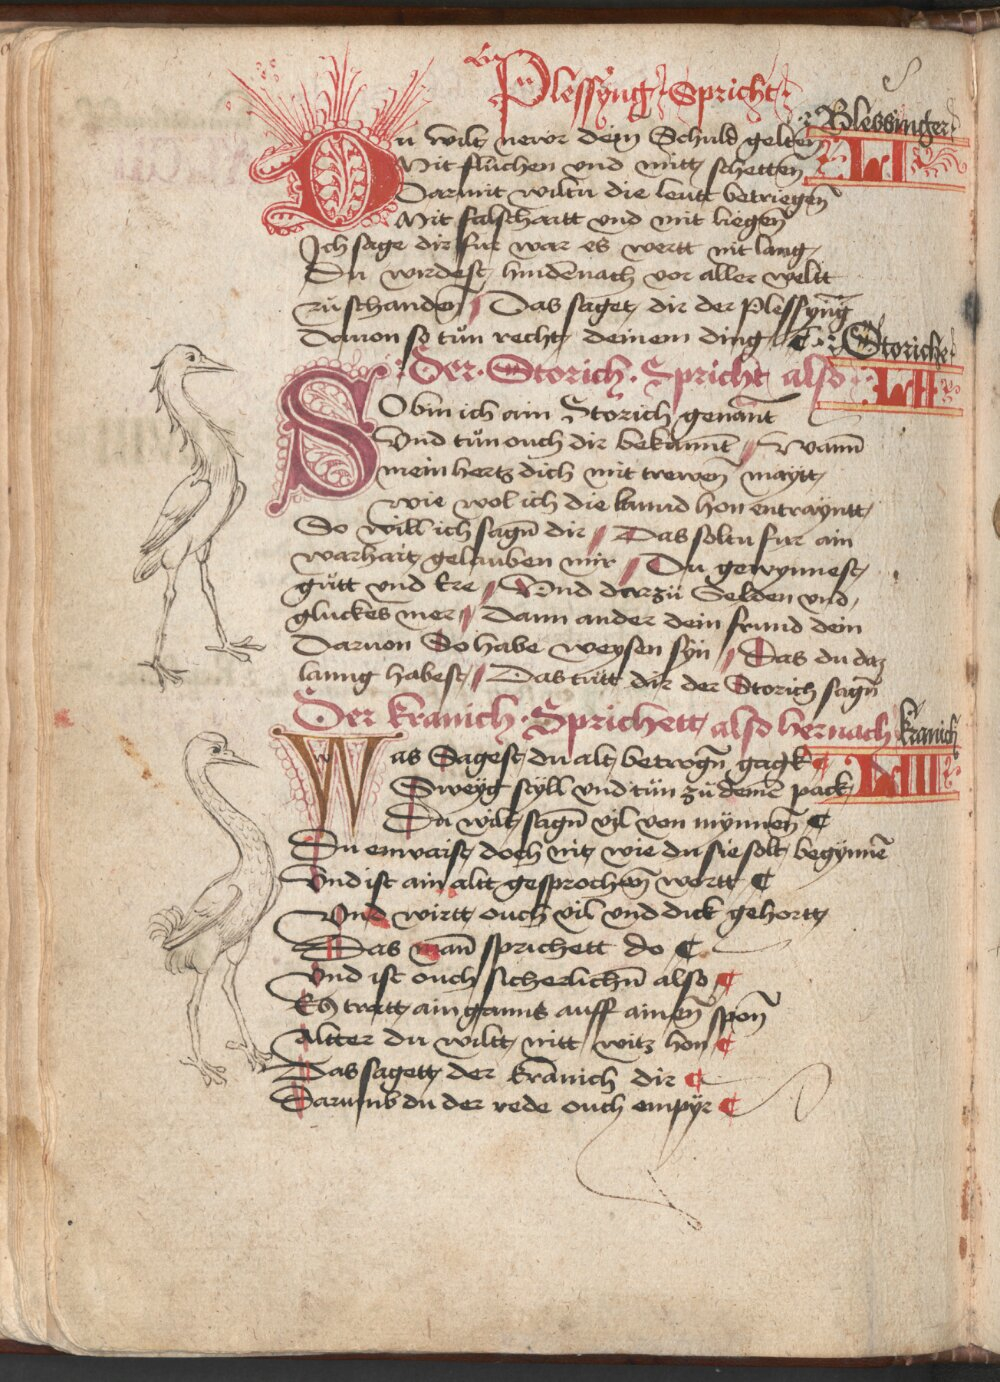 Der
Plessyng Spricht
Blessinger
LI
Du wilt newr dein Schuld geltten
Mit fluchen vnd mitt schetten
Darmit wiltu die leutt betriegen
Mit falschaitt vnd mit liegen
Ich sage dir fur war es wertt nit lang
Du wirdest hindennach vor aller weltt
zu schanden Das saget dir der Plessyng
Dauon so tün recht deinem ding
Storiche
LII
Der Storich Spricht also
So bin ich ain Storich genant
Vnd tün ouch dir bekannt Wann
mein hertz dich mit trewen maytt
wie wol ich die kannd hon entrayntt
So will ich sagn dir Das soltu fur ain
warhait gelauben mir Du gewynnest
gütt vnd Ere Vnd darzü Selden vnd
gluckes mer Dann ander dein frund dein
Daruon So habe weysen syn Das du daz
lanng habest Das tütt dir der Storich sagn
Der kranich Sprichett also hernach
kranich
LIII
Was Sagest du alt betrogn gagk
Sweyg styll vnd tün zü deinē pack
Du wilt sagn vil von mynnen
Du enwaist doch nit wie du sie solt begynnē
Vnd ist ain altt gesprochen wortt
Vnd wirtt ouch vil vnd dick gehortt
Das man sprichett do
Vnd ist ouch sicherlichn also
Es tratt ain ganns auff ainen spon
Altter du wiltt nitt witz hon
Das sagett der kranich dir
Darumb du der rede ouch empyr